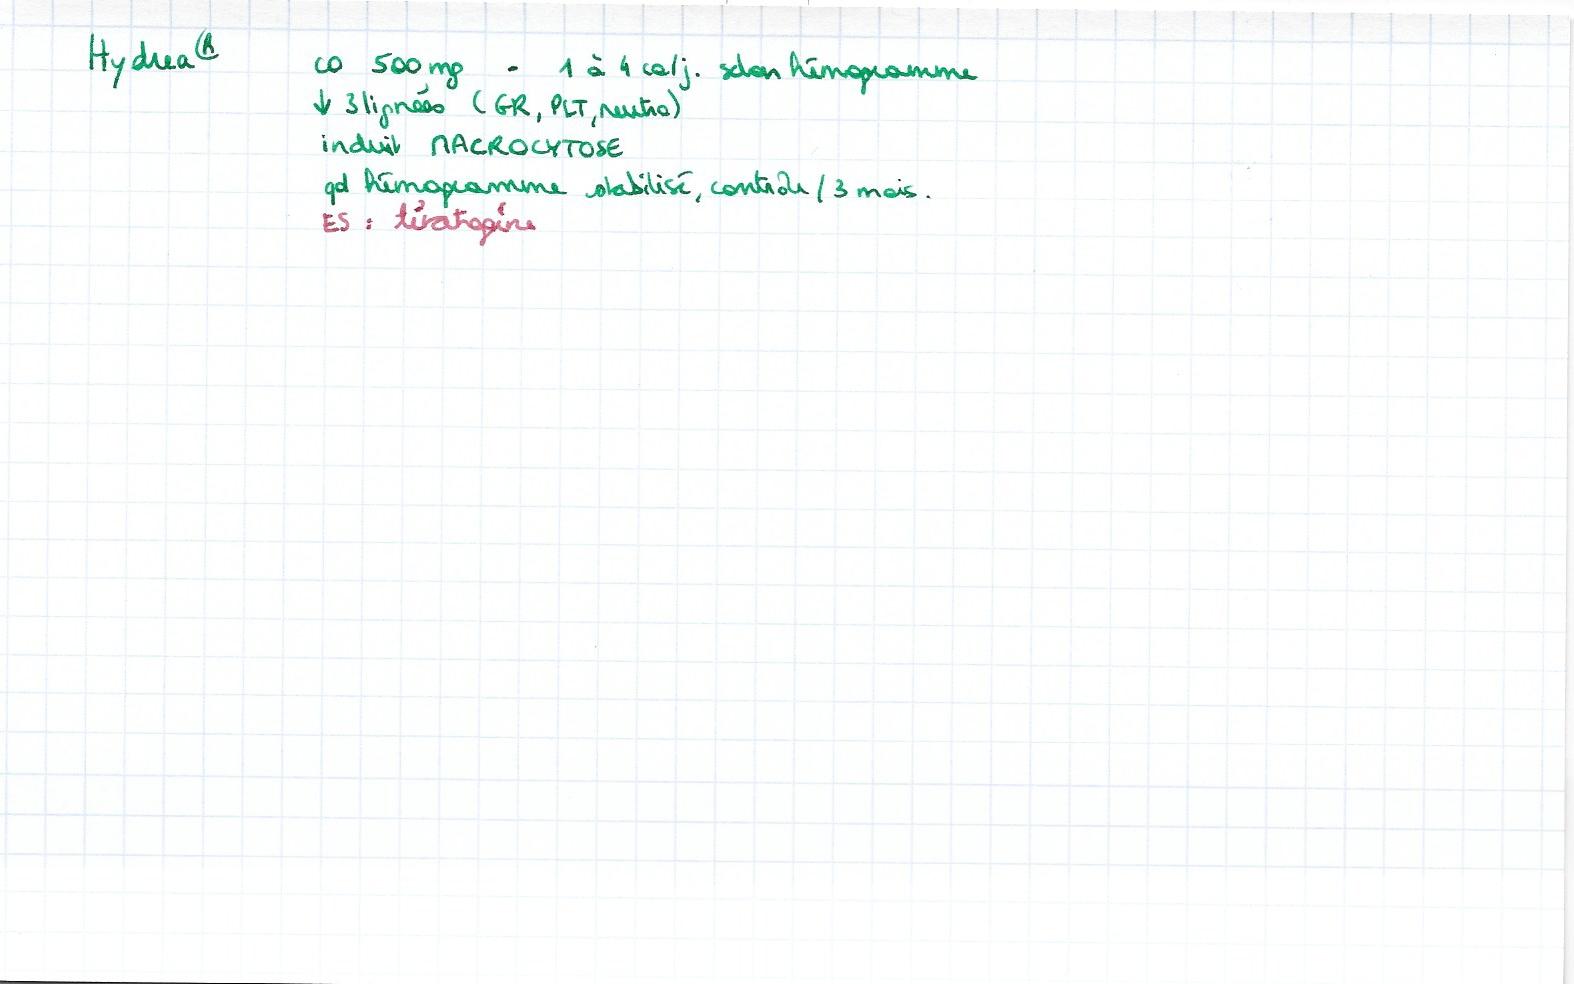 Hydrea® co 500 mg - 1 à 4 co/j. selon hémogramme
↓ 3 lignées (GR, PLT, neutro)
induit MACROCYTOSE
qd hémogramme stabilisé, contrôle / 3 mois.
ES : tératogène